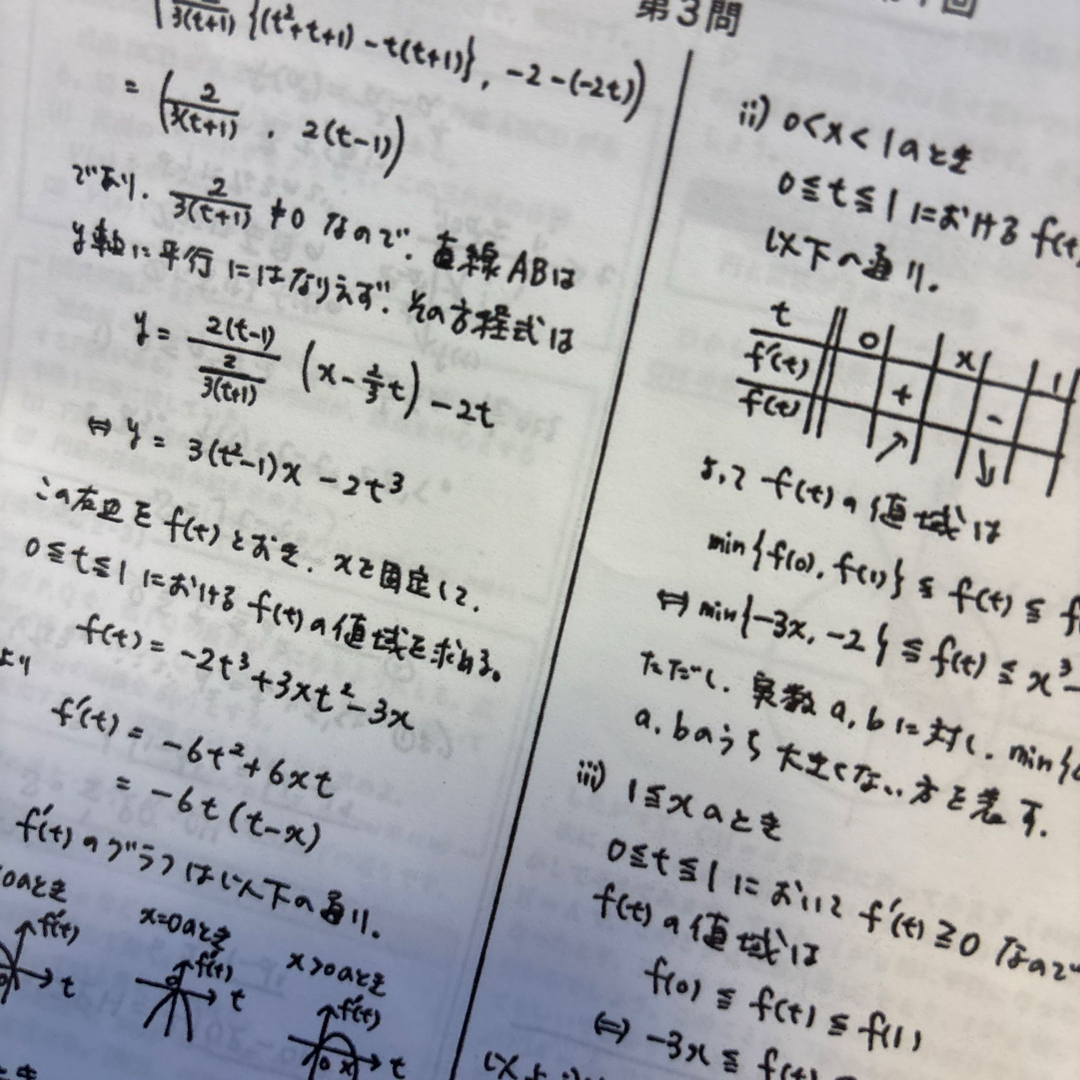 第3問
2/3(t+1) {(t²+t+1) - t(t+1)}, -2-(-2t))
= (2/3(t+1), 2(t-1))
であり、2/3(t+1) ≠0 なので、直線ABは
y軸に平行にはなりえず、その方程式は
y = 2(t-1)/(2/3(t+1)) (x - 2/3 t) - 2t
⇔ y = 3(t²-1)x - 2t³
この右辺をf(t)とおき、xを固定して、
0≦t≦1におけるf(t)の値域を求める。
f(t) = -2t³+3xt²-3x
より
f'(t) = -6t²+6xt
= -6t(t-x)
f'(t)のグラフは以下の通り。
0のとき x=0のとき x>0のとき
f'(t) t f'(t) t f'(t) t
0 0 0 x
ii) 0<x<1のとき
0≦t≦1におけるf(t)
以下の通り。
t 0 x 1
f'(t) + -
f(t) ↗ ↘
よって f(t)の値域は
min{f(0), f(1)} ≦ f(t) ≦ f
⇔ min{-3x, -2} ≦ f(t) ≦ x³-
ただし、実数a, bに対し、min{
a, bのうち大きくない方を表す。
iii) 1≦xのとき
0≦t≦1において f'(t)≧0 なので
f(t)の値域は
f(0) ≦ f(t) ≦ f(1)
⇔ -3x ≦ f(t)
以上